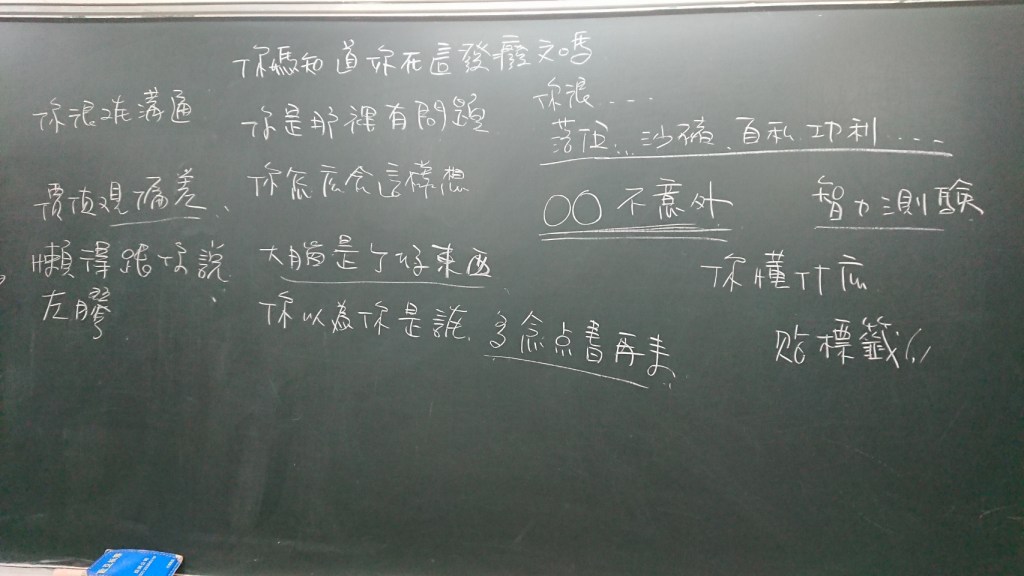 你媽知道你在這發癈文嗎
你很難溝通
價值觀偏差
懶得跟你說
左膠
你是那裡有問題
你怎麼会這樣想
大腦是个好東西
你以為你是誰
多念点書再來
你很....
落伍... 沙碩 自私 功利....
〇〇不意外
智力測驗
你懂什麼
贴標籤